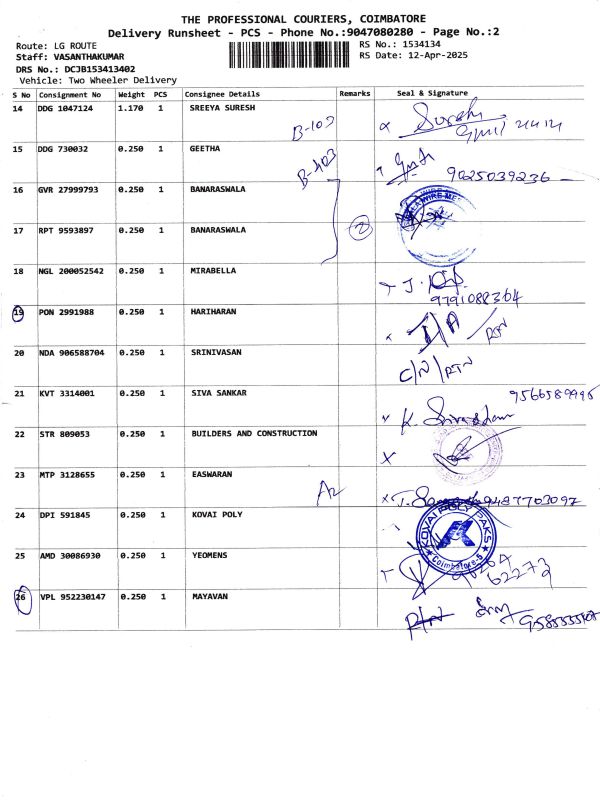 THE PROFESSIONAL COURIERS, COIMBATORE
Delivery Runsheet - PCS - Phone No.:9047080280 - Page No.:2
Route: LG ROUTE
RS No.: 1534134
Staff: VASANTHAKUMAR
RS Date: 12-Apr-2025
DRS No.: DCJB153413402
Vehicle: Two Wheeler Delivery
S No Consignment No Weight PCS Consignee Details Remarks Seal & Signature
14 DDG 1047124 1.170 1 SREEYA SURESH
B-103
15 DDG 730032 0.250 1 GEETHA
B-403 9025039236
16 GVR 27999793 0.250 1 BANARASWALA
17 RPT 9593897 0.250 1 BANARASWALA
2
18 NGL 200052542 0.250 1 MIRABELLA
9791088364
19 PON 2991988 0.250 1 HARIHARAN
I/A /RTN
20 NDA 906588704 0.250 1 SRINIVASAN
C/N/RTN
21 KVT 3314001 0.250 1 SIVA SANKAR
K.
22 STR 809053 0.250 1 BUILDERS AND CONSTRUCTION
X
23 MTP 3128655 0.250 1 EASWARAN
A2 9487703097
24 DPI 591845 0.250 1 KOVAI POLY
KOVAI POLY PAKS
Coimbatore-5
25 AMD 30086930 0.250 1 YEOMENS
62273
26 VPL 952230147 0.250 1 MAYAVAN